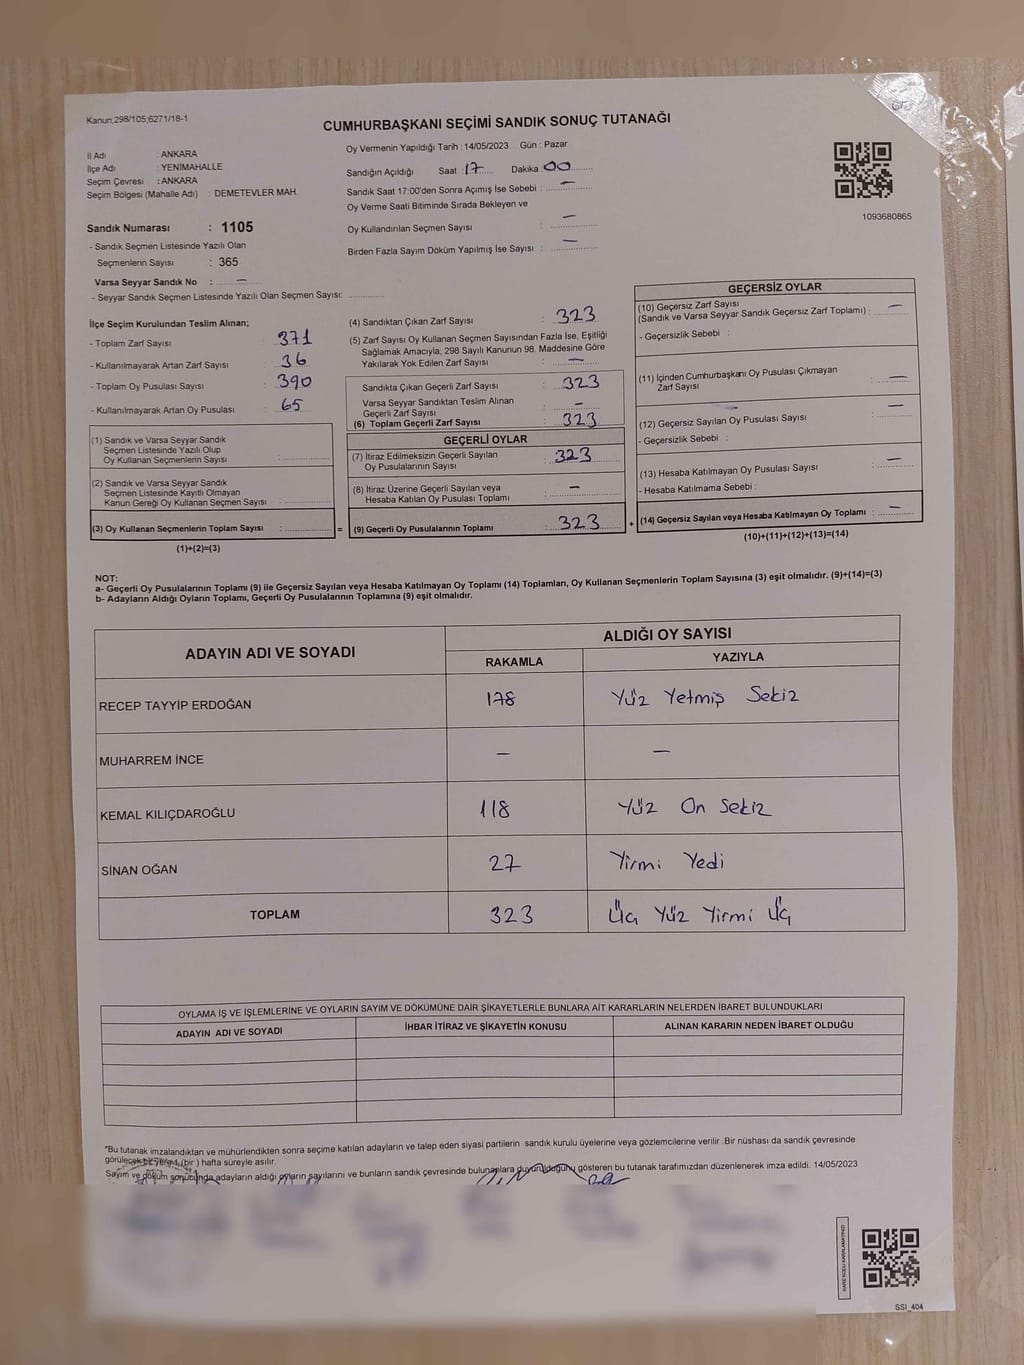 Kanun;298/105;6271/18-1
CUMHURBAŞKANI SEÇİMİ SANDIK SONUÇ TUTANAĞI
İl Adı : ANKARA
İlçe Adı : YENİMAHALLE
Seçim Çevresi : ANKARA
Seçim Bölgesi (Mahalle Adı) : DEMETEVLER MAH.
Sandık Numarası : 1105
- Sandık Seçmen Listesinde Yazılı Olan
Seçmenlerin Sayısı : 365
Varsa Seyyar Sandık No : –
- Seyyar Sandık Seçmen Listesinde Yazılı Olan Seçmen Sayısı: ............
Oy Vermenin Yapıldığı Tarih : 14/05/2023 Gün : Pazar
Sandığın Açıldığı Saat 17 Dakika 00
Sandık Saat 17:00'den Sonra Açımış İse Sebebi : –
Oy Verme Saati Bitiminde Sırada Bekleyen ve
Oy Kullandırılan Seçmen Sayısı : –
Birden Fazla Sayım Döküm Yapılmış İse Sayısı : –
1093680865
İlçe Seçim Kurulundan Teslim Alınan;
- Toplam Zarf Sayısı : 371
- Kullanılmayarak Artan Zarf Sayısı : 36
- Toplam Oy Pusulası Sayısı : 390
- Kullanılmayarak Artan Oy Pusulası : 65
(1) Sandık ve Varsa Seyyar Sandık
Seçmen Listesinde Yazılı Olup
Oy Kullanan Seçmenlerin Sayısı :
(2) Sandık ve Varsa Seyyar Sandık
Seçmen Listesinde Kayıtlı Olmayan
Kanun Gereği Oy Kullanan Seçmen Sayısı :
(3) Oy Kullanan Seçmenlerin Toplam Sayısı : =
(1)+(2)=(3)
(4) Sandıktan Çıkan Zarf Sayısı : 323
(5) Zarf Sayısı Oy Kullanan Seçmen Sayısından Fazla İse, Eşitliği
Sağlamak Amacıyla; 298 Sayılı Kanunun 98. Maddesine Göre
Yakılarak Yok Edilen Zarf Sayısı : –
Sandıkta Çıkan Geçerli Zarf Sayısı : 323
Varsa Seyyar Sandıktan Teslim Alınan
Geçerli Zarf Sayısı : –
(6) Toplam Geçerli Zarf Sayısı : 323
GEÇERLİ OYLAR
(7) İtiraz Edilmeksizin Geçerli Sayılan
Oy Pusulalarının Sayısı : 323
(8) İtiraz Üzerine Geçerli Sayılan veya
Hesaba Katılan Oy Pusulası Toplamı : –
(9) Geçerli Oy Pusulalarının Toplamı : 323 +
GEÇERSİZ OYLAR
(10) Geçersiz Zarf Sayısı
(Sandık ve Varsa Seyyar Sandık Geçersiz Zarf Toplamı) : –
- Geçersizlik Sebebi :
(11) İçinden Cumhurbaşkanı Oy Pusulası Çıkmayan
Zarf Sayısı : –
(12) Geçersiz Sayılan Oy Pusulası Sayısı : –
- Geçersizlik Sebebi :
(13) Hesaba Katılmayan Oy Pusulası Sayısı : –
- Hesaba Katılmama Sebebi :
(14) Geçersiz Sayılan veya Hesaba Katılmayan Oy Toplamı : –
(10)+(11)+(12)+(13)=(14)
NOT:
a- Geçerli Oy Pusulalarının Toplamı (9) ile Geçersiz Sayılan veya Hesaba Katılmayan Oy Toplamı (14) Toplamları, Oy Kullanan Seçmenlerin Toplam Sayısına (3) eşit olmalıdır. (9)+(14)=(3)
b- Adayların Aldığı Oyların Toplamı, Geçerli Oy Pusulalarının Toplamına (9) eşit olmalıdır.
ADAYIN ADI VE SOYADI
ALDIĞI OY SAYISI
RAKAMLA YAZIYLA
RECEP TAYYİP ERDOĞAN 178 Yüz Yetmiş Sekiz
MUHARREM İNCE – –
KEMAL KILIÇDAROĞLU 118 Yüz On Sekiz
SİNAN OĞAN 27 Yirmi Yedi
TOPLAM 323 Üç Yüz Yirmi Üç
OYLAMA İŞ VE İŞLEMLERİNE VE OYLARIN SAYIM VE DÖKÜMÜNE DAİR ŞİKAYETLERLE BUNLARA AİT KARARLARIN NELERDEN İBARET BULUNDUKLARI
ADAYIN ADI VE SOYADI İHBAR İTİRAZ VE ŞİKAYETİN KONUSU ALINAN KARARIN NEDEN İBARET OLDUĞU
*Bu tutanak imzalandıktan ve mühürlendikten sonra seçime katılan adayların ve talep eden siyasi partilerin sandık kurulu üyelerine veya gözlemcilerine verilir .Bir nüshası da sandık çevresinde
görülecek bir yere 1 (bir ) hafta süreyle asılır.
Sayım ve döküm sonucunda adayların aldığı oyların sayılarını ve bunların sandık çevresinde bulunanlara duyurulduğunu gösteren bu tutanak tarafımızdan düzenlenerek imza edildi. 14/05/2023
KARE KODU KARALAMAYINIZ!
SSI_404